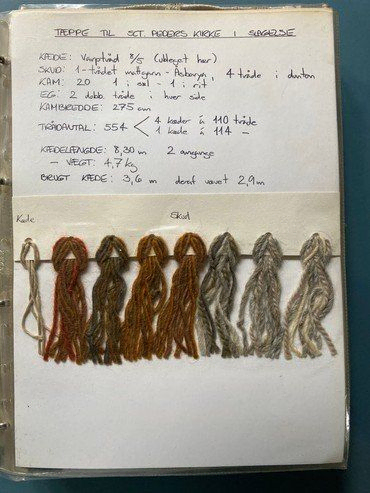 TÆPPE TIL SCT. PEDERS KIRKE I SLAGELSE
KÆDE: Varptråd 8/5 (ubleget hør)
SKUD: 1-trådet mattegarn - Asborya, 4 tråde i dunton
KAM: 20 1 i søl - 1 i rit
EG: 2 dobb. tråde i hver side
KAMBREDDE: 275 cm
TRÅDANTAL: 554 < 4 kæder á 110 tråde
1 kæde á 114 -
KÆDELÆNGDE: 8,30 m 2 omgange
- VÆGT: 4,7 kg
BRUGT KÆDE: 3,6 m deraf vævet 2,9 m
Kæde
Skud